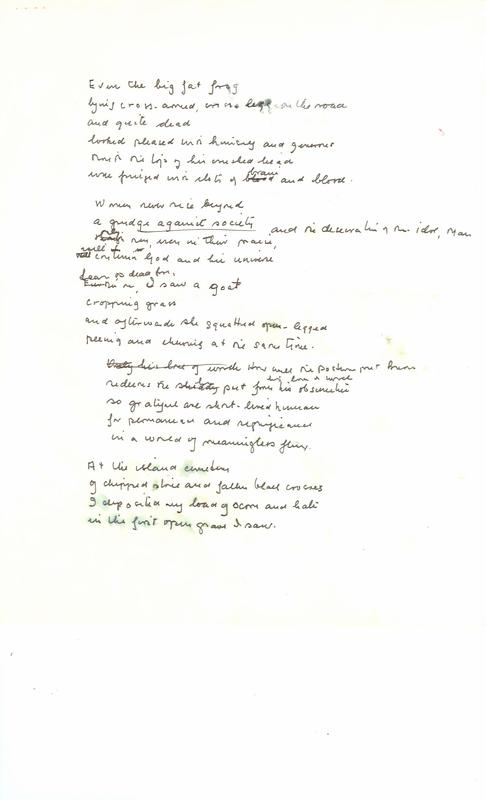 Even the big fat frog
lying cross-armed, on the road
and quite dead
looked pleased with himself and generous
tho' the top of his crushed head
was fringed with clots of brain and blood.
Women never rise beyond
a grudge against society and the desecration of the idol, Man
men, even in their
will contain God and his universe
I saw a goat
cropping grass
and afterwards she squatted open-legged
peeing and chewing at the same time.
his love of words the posture
redeems the poet from his obscenities
so grateful are short-lived humans
for permanence and significance
in a world of meaningless flux.
At the island cemetery
of chipped stone and fallen black crosses
I deposited my load of scorn and hate
in the first open grave I saw.